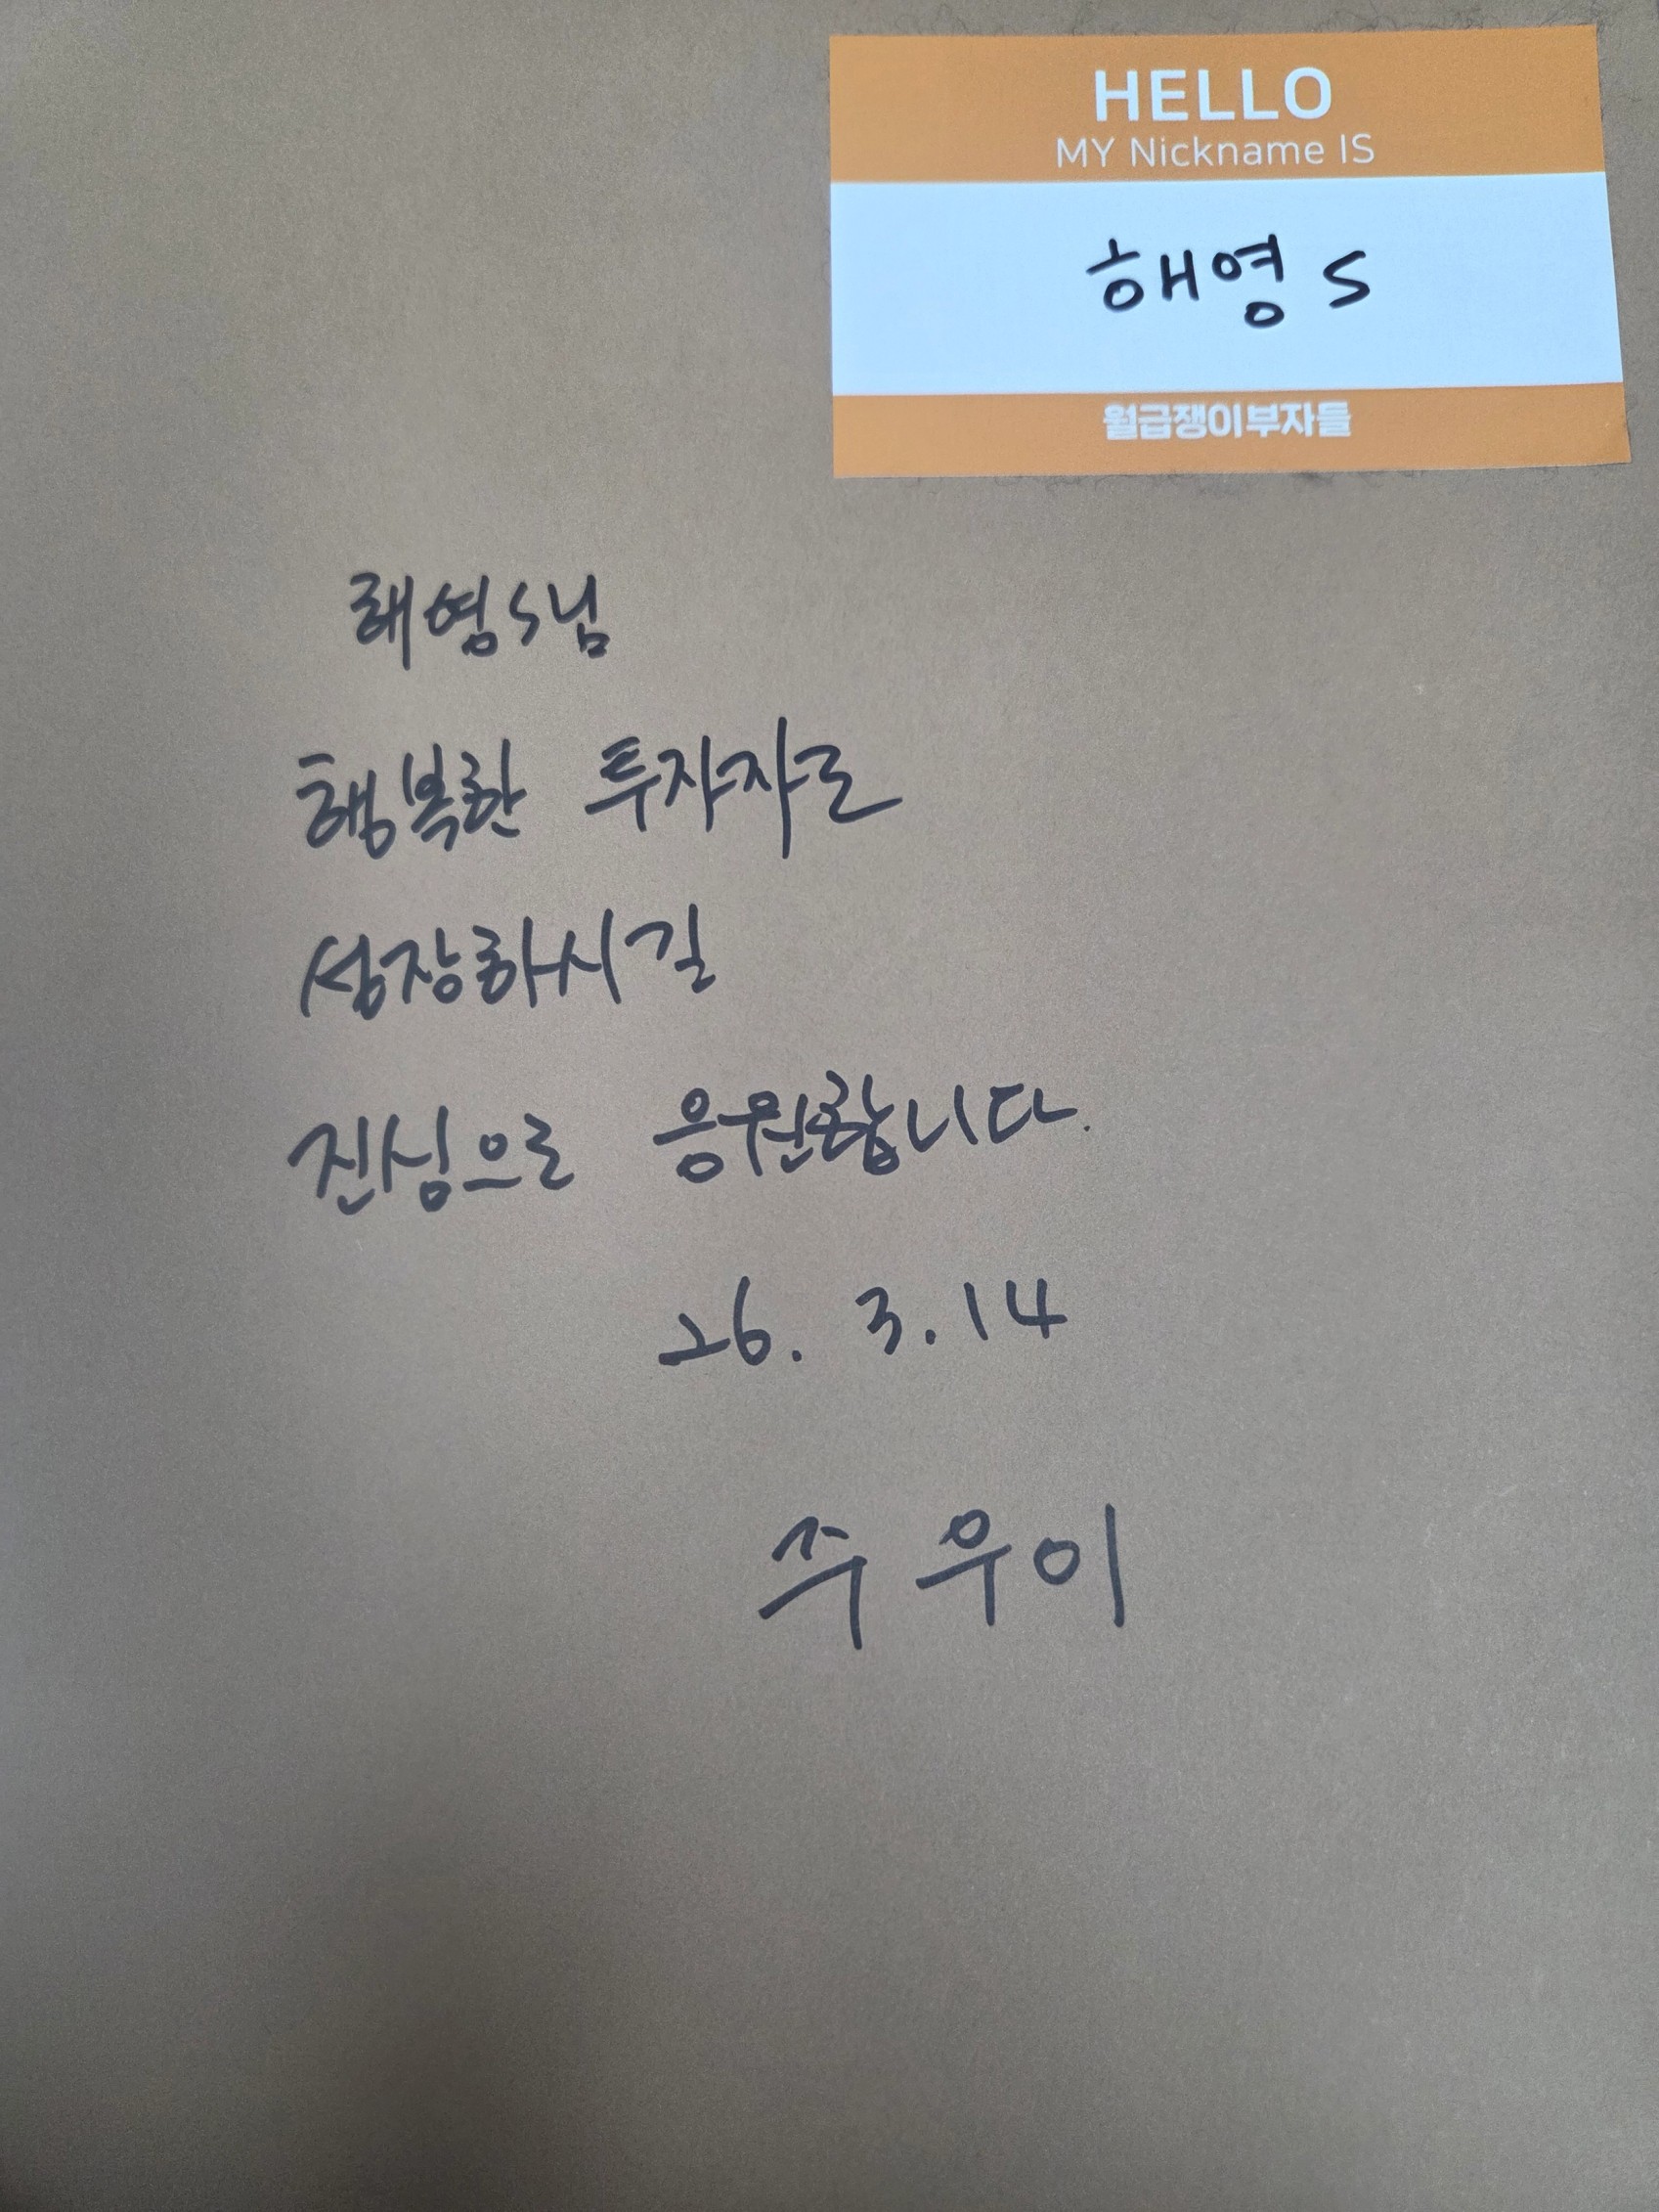 HELLO
MY Nickname IS
해영 S
월급쟁이부자들
해영S님
행복한 투자자로
성장하시길
진심으로 응원합니다.
26. 3. 14
주우이